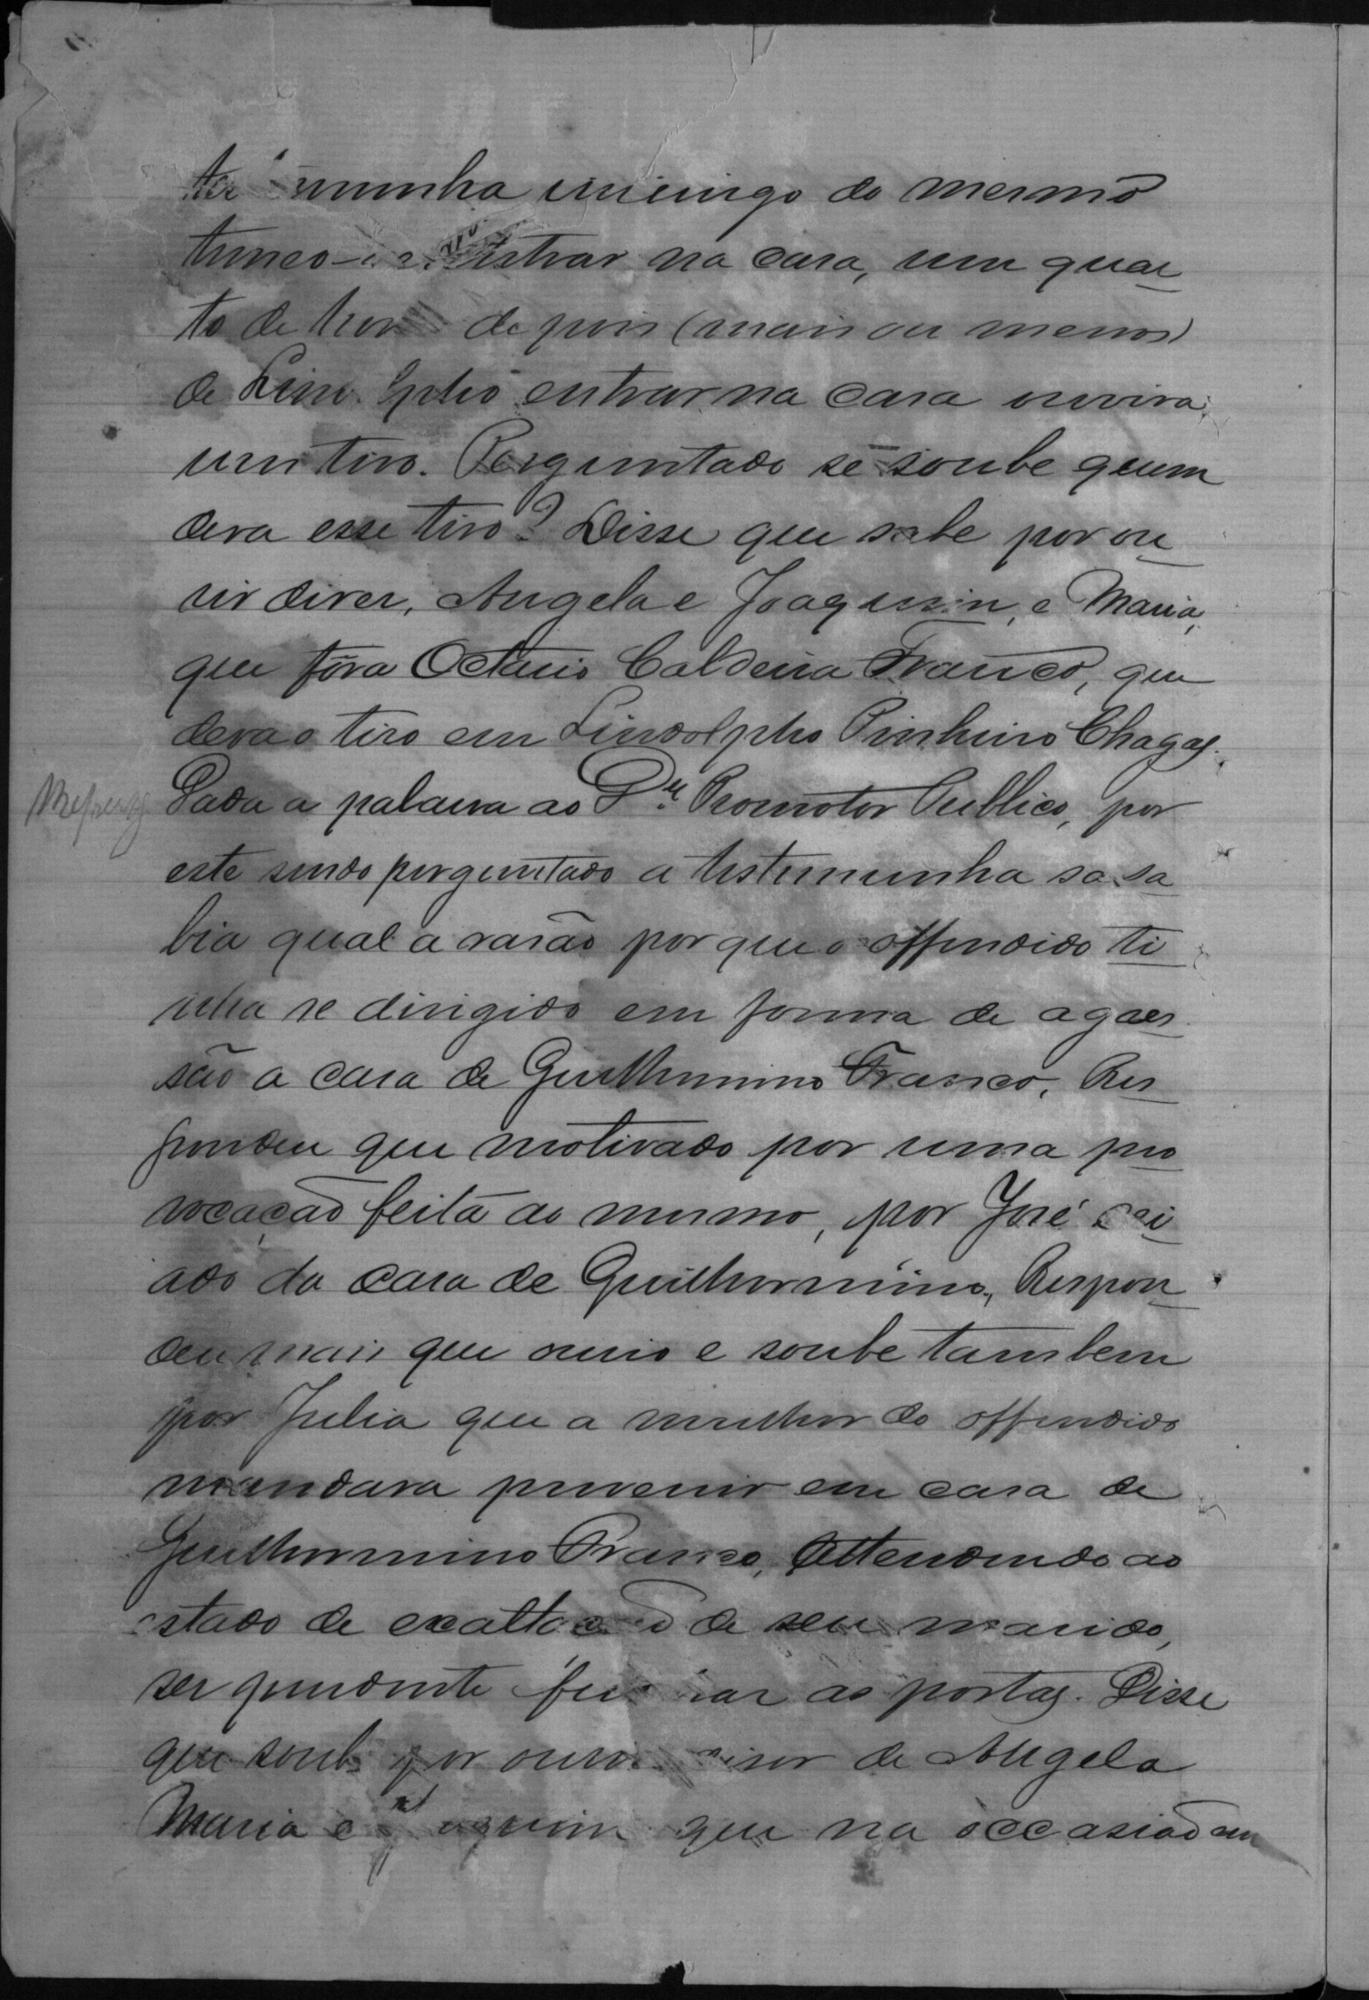 munha inimigo do mesmo
entrar na casa, um quar
to de hora depois (mais ou menos)
de Lindolpho entrar na casa ouvira
um tiro. Perguntado se soube quem
dera esse tiro? Disse que sabe por ou
vir dizer, Angela e Joaquim, e Maria,
que fôra Octavio Caldeira Franco, que
dera o tiro em Lindolpho Pinheiro Chagas.
Dada a palavra ao Dr. Promotor Publico, por
este sendo perguntado a testemunha se sa
bia qual a rasão por que o offendido ti
nha se dirigido em forma de aggres
são a casa de Guilhermino Franco. Res
pondeu que motivado por uma pro
vocação feita ao mesmo, por José cri
ado da casa de Guilhermino, Respon
deu mais que ouvio e soube tambem
por Julia que a mulher do offendido
mandara prevenir em casa de
Guilhermino Franco, attendendo ao
estado de exaltação de seu marido,
ser prudente fechar as portas. Disse
que soube por ouvir diser de Angela
Maria e Joaquim que na occasião em